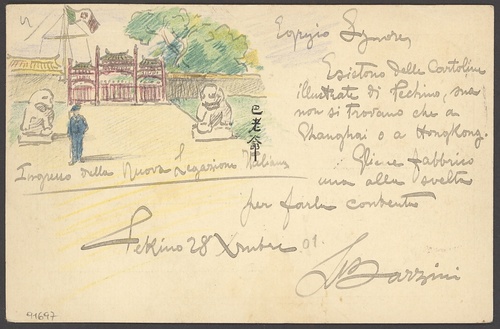 Egregio Signore,
Esistono delle Cartoline
illustrate di Pechino, ma
non si trovano che a
Shanghai o a HongKong.
Gliene fabbrico
una alla svelta
per farla contento
巴老爺
Ingresso della Nuova Legazione Italiana
Pekino 28 Xmbre 01.
LBarzini
91697